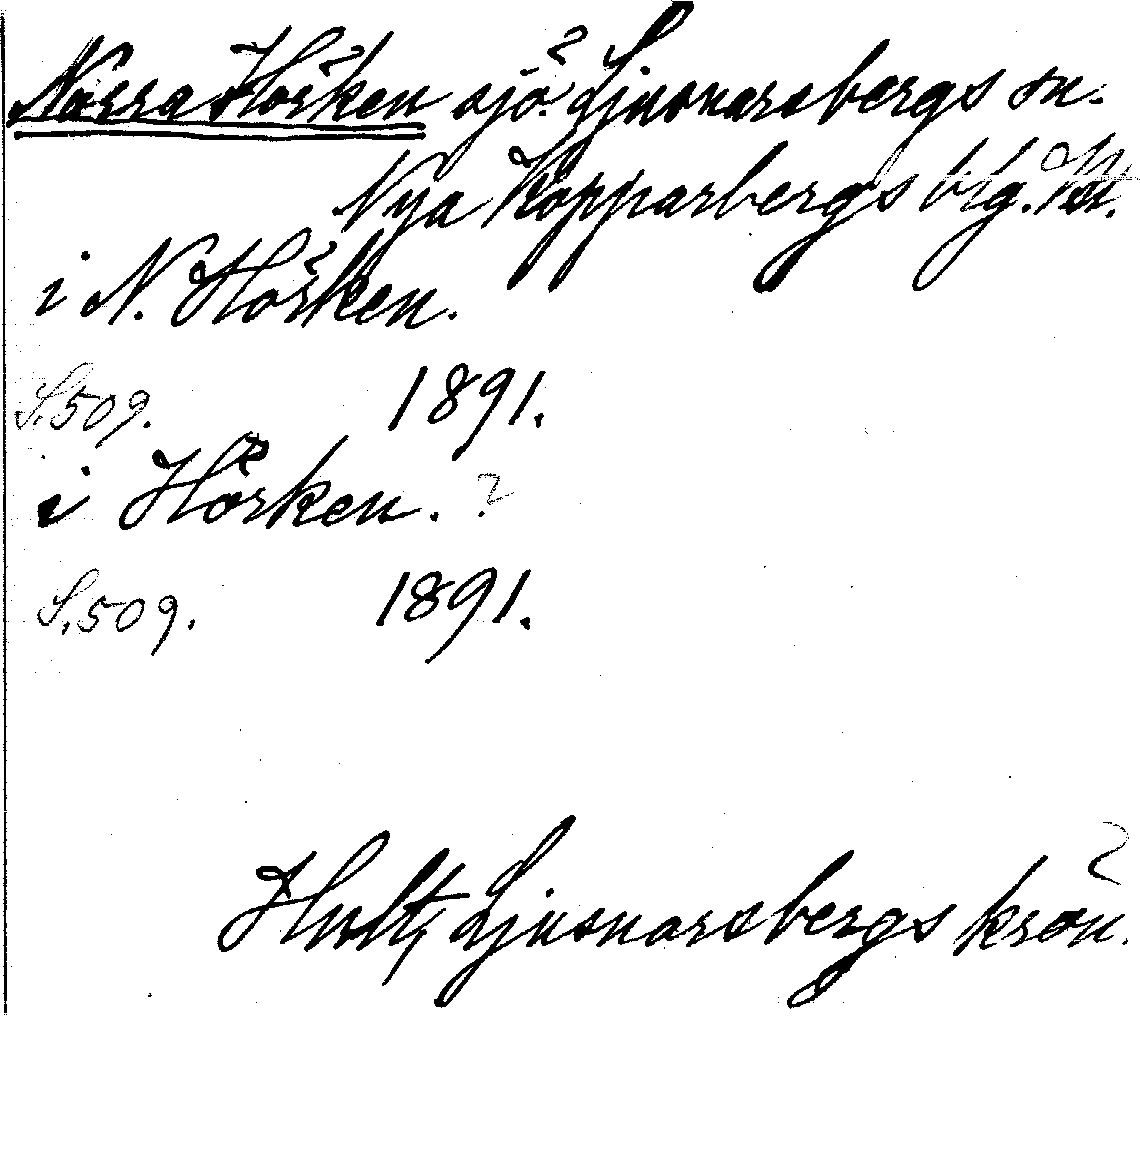 Norra Hörken sjö. Ljusnarsbergs sn.
Nya Kopparbergs blg.
i N. Hörken.
S. 509. 1891.
i Hörken. ?
S. 509. 1891.
Hult, Ljusnarsbergs krön.